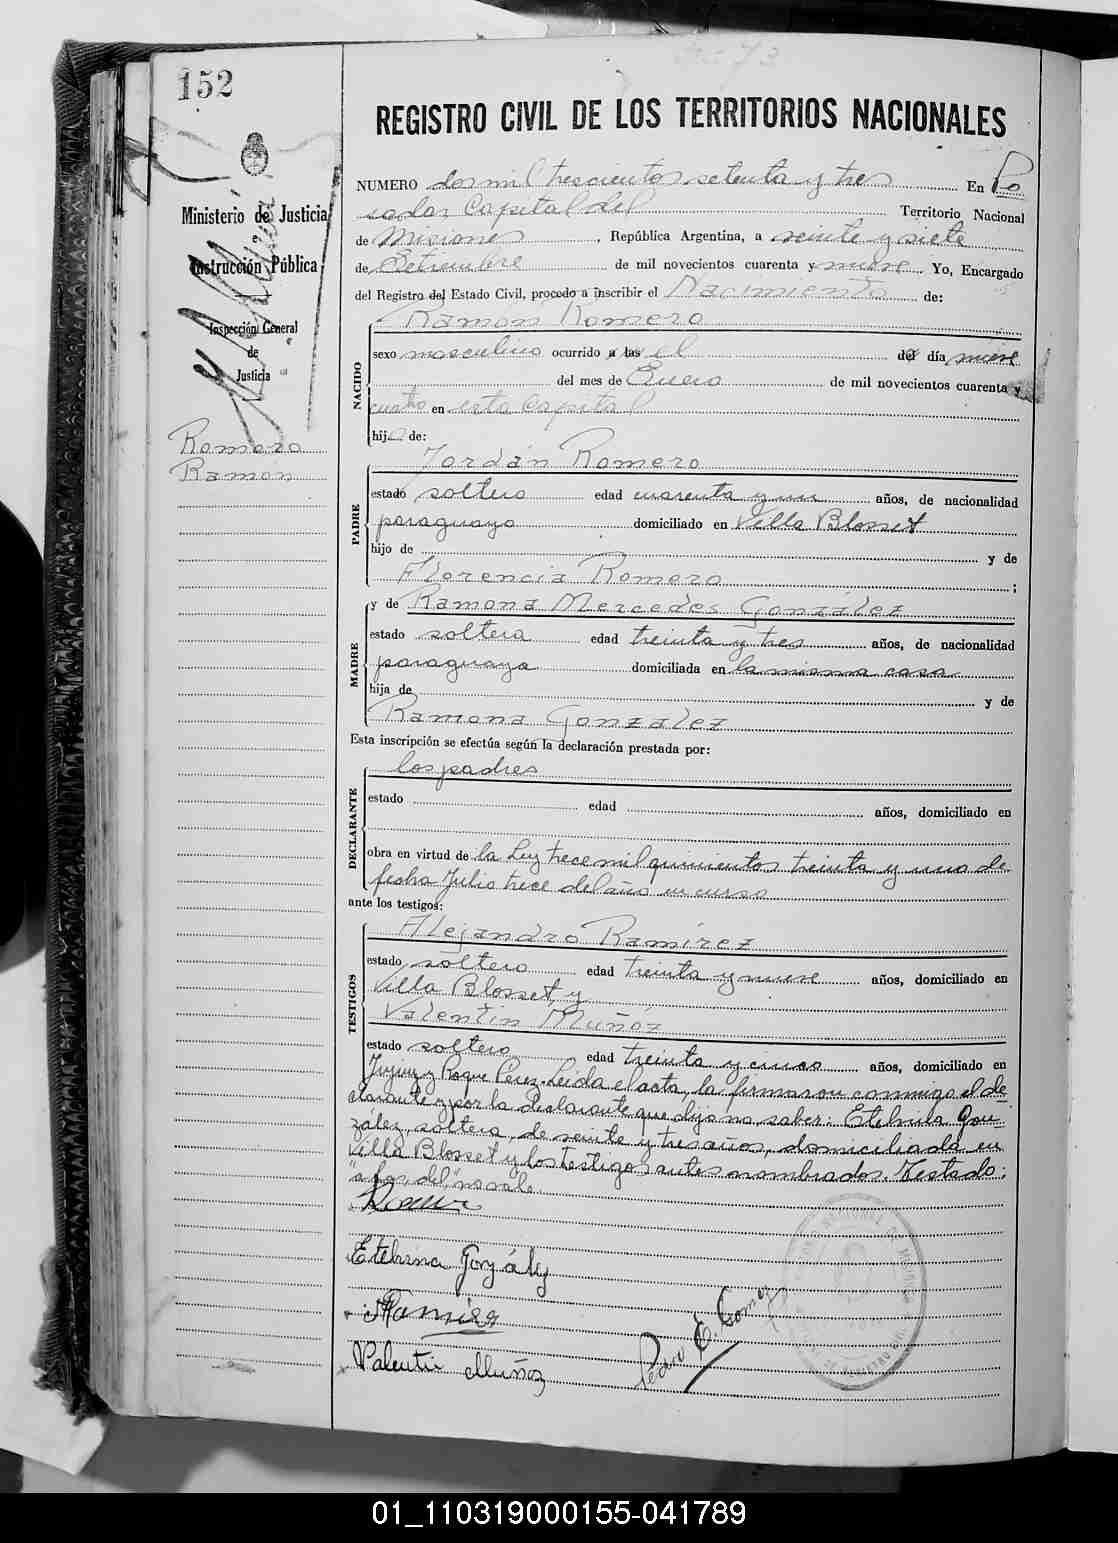 152
REGISTRO CIVIL DE LOS TERRITORIOS NACIONALES
Ministerio de Justicia
Instrucción Pública
Inspección General
de
Justicia
Romero
Ramón
NUMERO dos mil trescientos setenta y tres En Po
sadas Capital del Territorio Nacional
de Misiones, República Argentina, a veinte y siete
de Setiembre de mil novecientos cuarenta y nueve Yo, Encargado
del Registro del Estado Civil, procedo a inscribir el Nacimiento de:
Ramón Romero
NACIDO
sexo masculino ocurrido a las el del día nueve
del mes de Enero de mil novecientos cuarenta y
cuatro en esta Capital
hijo de:
Jordán Romero
PADRE
estado soltero edad cuarenta y un años, de nacionalidad
paraguaya domiciliado en Villa Blosset
hijo de y de
Florencia Romero ;
y de Ramona Mercedes González
MADRE
estado soltera edad treinta y tres años, de nacionalidad
paraguaya domiciliada en la misma casa
hija de y de
Ramona González
Esta inscripción se efectúa según la declaración prestada por:
los padres
DECLARANTE
estado edad años, domiciliado en
obra en virtud de la Ley trece mil quinientos treinta y uno de
fecha Julio trece del año en curso
ante los testigos:
Alejandro Ramírez
TESTIGOS
estado soltero edad treinta y nueve años, domiciliado en
Villa Blosset, y
Valentín Muñóz
estado soltero edad treinta y cinco años, domiciliado en
Jujuy y Roque Perez. Leida el acta, la firmaron conmigo el de-
clarante y por la declarante que dijo no saber: Etelvina Gon-
zález, soltera, de veinte y tres años, domiciliada en
Villa Blosset y los testigos antes nombrados. Testado:
"a las, del," no vale.
Romero
Etelvina González
Ramírez
Pedro E. Gomez
Valentin Muñoz
01_110319000155-041789